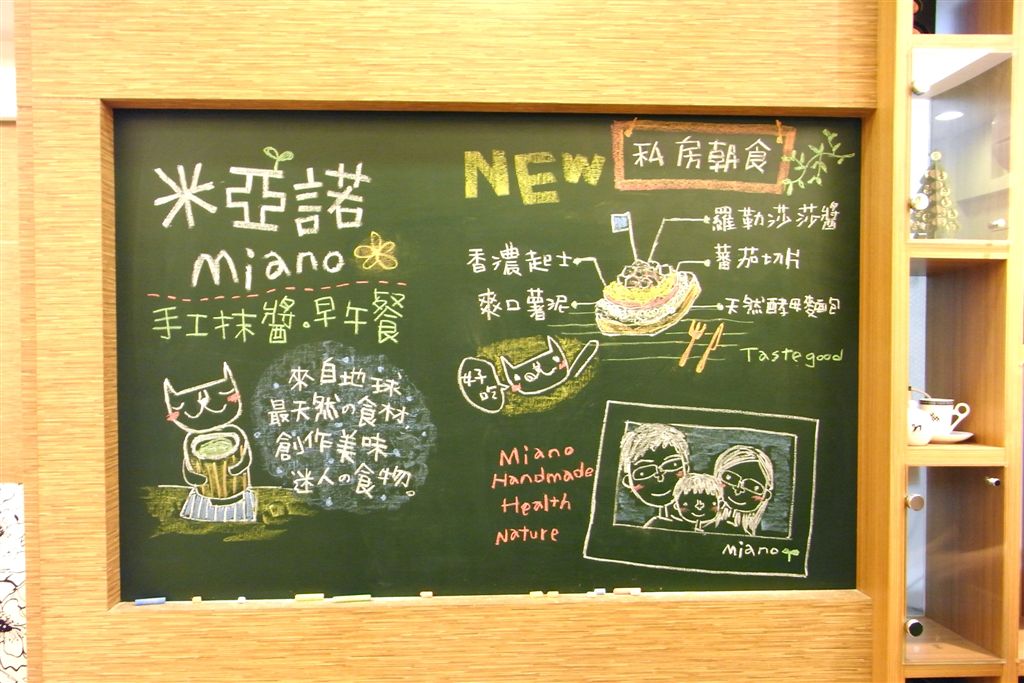 米亞諾
miano
手工抹醬.早午餐
來自地球
最天然の食材
創作美味
迷人の食物。
NEW
私房朝食
羅勒莎莎醬
香濃起士
蕃茄切片
爽口薯泥
天然酵母麵包
Taste good
好吃
Miano
Handmade
Health
Nature
miano